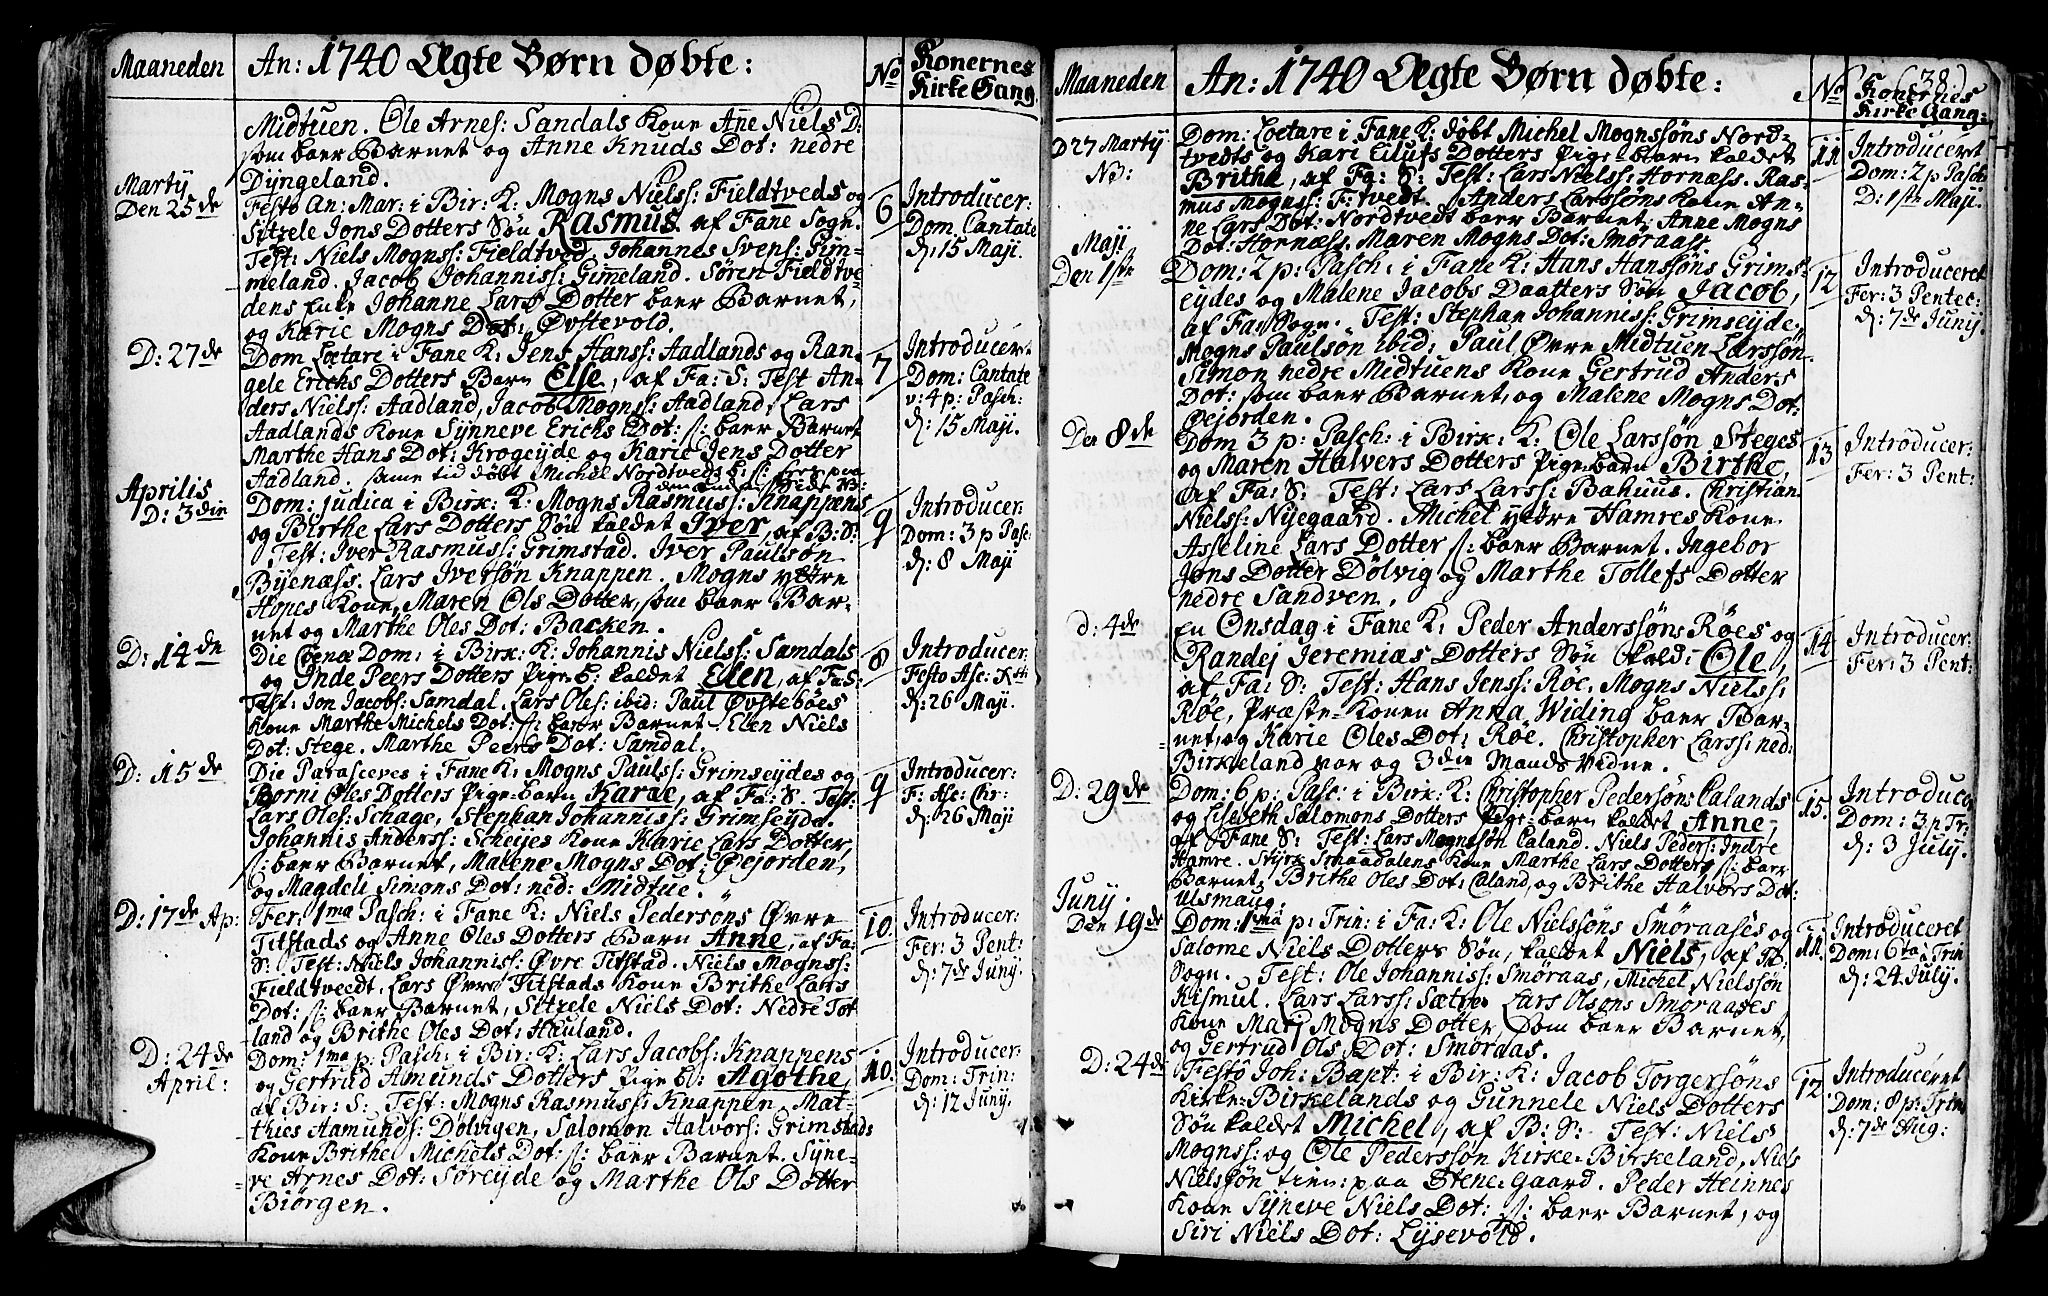 Maaneden
An: 1740 Ægte Børn døbte:
No
Konernes
Kirke Gang.
Midtuen. Ole Arnes: Sandals Kone Anne Niels D:
som baer Barnet og Anne Knuds Dot: nedre
Dÿngeland.
Martÿ
Den 25de
Festo An: Mar: i Bir: K: Mogns Nielss: Fieldtveds og
Sitzele Jons Dotters Søn Rasmus af Fane Sogn.
Test: Niels Mognss: Fieldtved. Johannes Svens: Gim-
meland. Jacob Johanniss: Gimeland. Søren Fieldtve
dens Enke Johanne Lars Dotter baer Barnet,
og Karie Mogns Dot: Øvstevold.
6
Introducer:
Dom. Cantate
d: 15 Maji.
D: 27de
Dom Lætare i Fane K: Jens Hanss: Aadlands og Ran-
gele Erichs Dotters Barn Else, af Fa: S: Test An-
ders Nielss: Aadland, Jacob Mognss: Aadland, Lars
Aadlands Kone Sÿnneve Erichs Dot: s: baer Barnet
Marthe Hans Dot: Krogeÿde og Karie Jens Dotter
Aadland. same tid døbt Michel Nordtveds b: s: seer paa
den anden side NB:
7
Introduceret
Dom: Cantate
v: 4 p: Pasch:
d: 15 Maji.
Aprilis
D: 3die
Dom: judica i Birk: K: Mogns Rasmuss: Knappens
og Birthe Lars Dotters Søn kaldet Iver, af B: S:
Test: Iver Rasmuss: Grimstad. Iver Paulsøn
Bÿenæss. Lars Iversøn Knappen. Mogns ÿttre
Hopes Kone, Maren Ols Dotter, som baer Bar-
net og Marthe Oles Dot: Backen.
9
Introducer:
Dom: 3 p Pasc:
d: 8 Maji
D: 14de
Die Coenæ Dom: i Birk: K: Johannis Nielss: Samdals
og Inde Peers Dotters Pige b: kaldet Elen, af Fa S:
Test: Jon Jacobs: Samdal. Lars Oles: ibid: Paul Øvstebøes
Kone Marthe Michels Dot: s: baer Barnet. Elen Niels
Dot: Stege. Marthe Peers Dot: Samdal.
8
Introducer
Festo Asc: Xsti
d: 26 Maji.
D: 15de
Die Parasceves i Fane K: Mogns Paulss: Grimseÿdes og
Børni Oles Dotters Pige-barn Karae, af Fa: S. Test:
Lars Oles: Schage, Stephan Johanniss: Grimseÿde.
Johannis Anderss: Scheÿes Kone Karie Lars Dotter,
s: baer Barnet, Malene Mogns Dot: Øejorden,
og Magdeli Simons Dot: ned: Midtue.
9
Introducer:
F: Asc: Chr:
d: 26 Maji
D: 17de Ap:
Fer: 1ma Pasch: i Fane K: Niels Pedersøns Øvre
Titstads og Anne Oles Dotters Barn Anne, af Fa:
S: Test: Niels Johanniss: Øvre Titstad. Niels Mognss:
Fieldtveedt, Lars Øvre Titstads Kone Brithe Lars
Dot: s: baer Barnet, Sitzele Niels Dot: Nedre Tot
land og Brithe Oles Dot: Hauland.
10.
Introducer:
Fer: 3 Pent:
d: 7de Junÿ.
D: 24de
April:
Dom: 1ma p: Pasch: i Bir: K: Lars Jacobs: Knappens
og Gertrud Amunds Dotters Pige b: Agothe,
af Bir: S: Test: Mogns Rasmuss: Knappen, Mat-
thies Aamunds: Dølvigen, Salomon Halvors: Grimstads
Kone Brithe Michels Dot: s: baer Barnet. Sÿne-
ve Arnes Dot: Søreÿde og Marthe Ols Dotter
Biørgen.
10.
Introducer:
Dom: Trin:
d: 12 Junÿ.
Maaneden
An: 1740 Ægte Børn døbte:
No
(38.)
Konernes
Kirke Gang:
D 27 Martÿ
NB:
Dom: Loetare i Fane K: døbt Michel Mognssøns Nord-
tvedts og Kari Eilufs Dotters Pige-barn kaldet
Brithe, af Fa: S: Test: Lars Nielss: Hornæss. Ras-
mus Mognss: F: tvedt. Anders Larssøns Kone An-
ne Lars Dot: Nordtvedt baer Barnet, Anne Mogns
Dot: Hornæss, Maren Mogns Dot: Smøraass.
11
Introduceret
Dom: 2 p Pasch
D: 1ste Maji.
Maji
Den 1ste
Dom: 2 p: Pasch: i Fane K: Hans Hanssøns Grims-
eÿdes og Malene Jacobs Daatters Søn Jacob,
af Fa: Sogn. Test: Stephan Johanniss: Grimseÿde,
Mogns Paulsøn ibid: Paul Øvre Midtuen Larssøn.
Simon nedre Midtuens Kone Gertrud Anders
Dot: som baer Barnet, og Malene Mogns Dot:
Øejorden.
12
Introduceret
Fer: 3 Pentec:
d: 7de Junÿ
Den 8de
Dom 3 p: Pasch: i Birk: K: Ole Larssøn Steges
og Maren Halvers Dotters Pige-barn Birthe,
af Fa: S: Test: Lars Larss: Bahuus. Christian
Nielss: Nÿegaard. Michel ÿttre Hamres Kone
Asseline Lars Dotter s: baer Barnet. Ingebor
Jons Dotter Dølvig og Marthe Tollefs Dotter
nedre Sandven.
13
Introducer:
Fer: 3 Pent:
d: 4de
En Onsdag i Fane K: Peder Anderssøns Røes og
Randej Jeremias Dotters Søn kald: Ole,
af Fa: S: Test: Hans Jenss: Røe. Mogns Nielss:
Røe, Præste-Konen Anna Widing baer Bar-
net, og Karie Oles Dot: Røe. Christopher Larss: ned:
Birkeland var og 3die Mands Vidne.
14
Introducer:
Fer: 3 Pent:
D: 29de
Dom: 6 p: Pasc: i Birk: K: Christopher Pedersøns Calands
og Lisebeth Salomons Dotters Pige-barn kaldet Anne,
af Fane S: Test: Lars Mognssøn Caland. Niels Peders: Indre
Hamre. Stÿrk Smaadalens Kone Marthe Lars Dotter s: baer
Barnet, Brithe Oles Dot: Caland, og Brithe Halvors Dot:
Ulsmaug.
15.
Introduce
Dom: 3 p Tr:
d: 3 Julÿ.
Junÿ.
Den 19de
Dom: 1ma p: Trin: i Fa: K: Ole Nielssøns Smøraases og
Salome Niels Dotters Søn, kaldet Niels, af B:
Sogn. Test: Ole Johanniss: Smøraas, Michel Nielssøn
Kismul. Lars Larss: Sætre. Lars Olsøns Smøraases
Kone Marj Mogns Dotter, som baer Barnet,
og Gertrud Ols Dot: Smøraas.
11.
Introduceret
Dom: 6ta p Trin
d: 24 Julÿ.
D: 24de
Festo Joh: Bapt: i Bir: K: Jacob Torgersøns
Kirke-Birkelands og Gunnele Niels Dotters
Søn kaldet Michel, af B: S: Test: Niels
Mognss: og Ole Pederssøn Kirke-Birkeland, Niels
Nielsøn tien: paa Stene-Gaard. Peder Heinnes
Kone Sÿneve Niels Dot: s: baer Barnet, og
Siri Niels Dot: Lÿsevold.
12.
Introduceret
Dom: 8 p: Trin
d: 7de Aug: